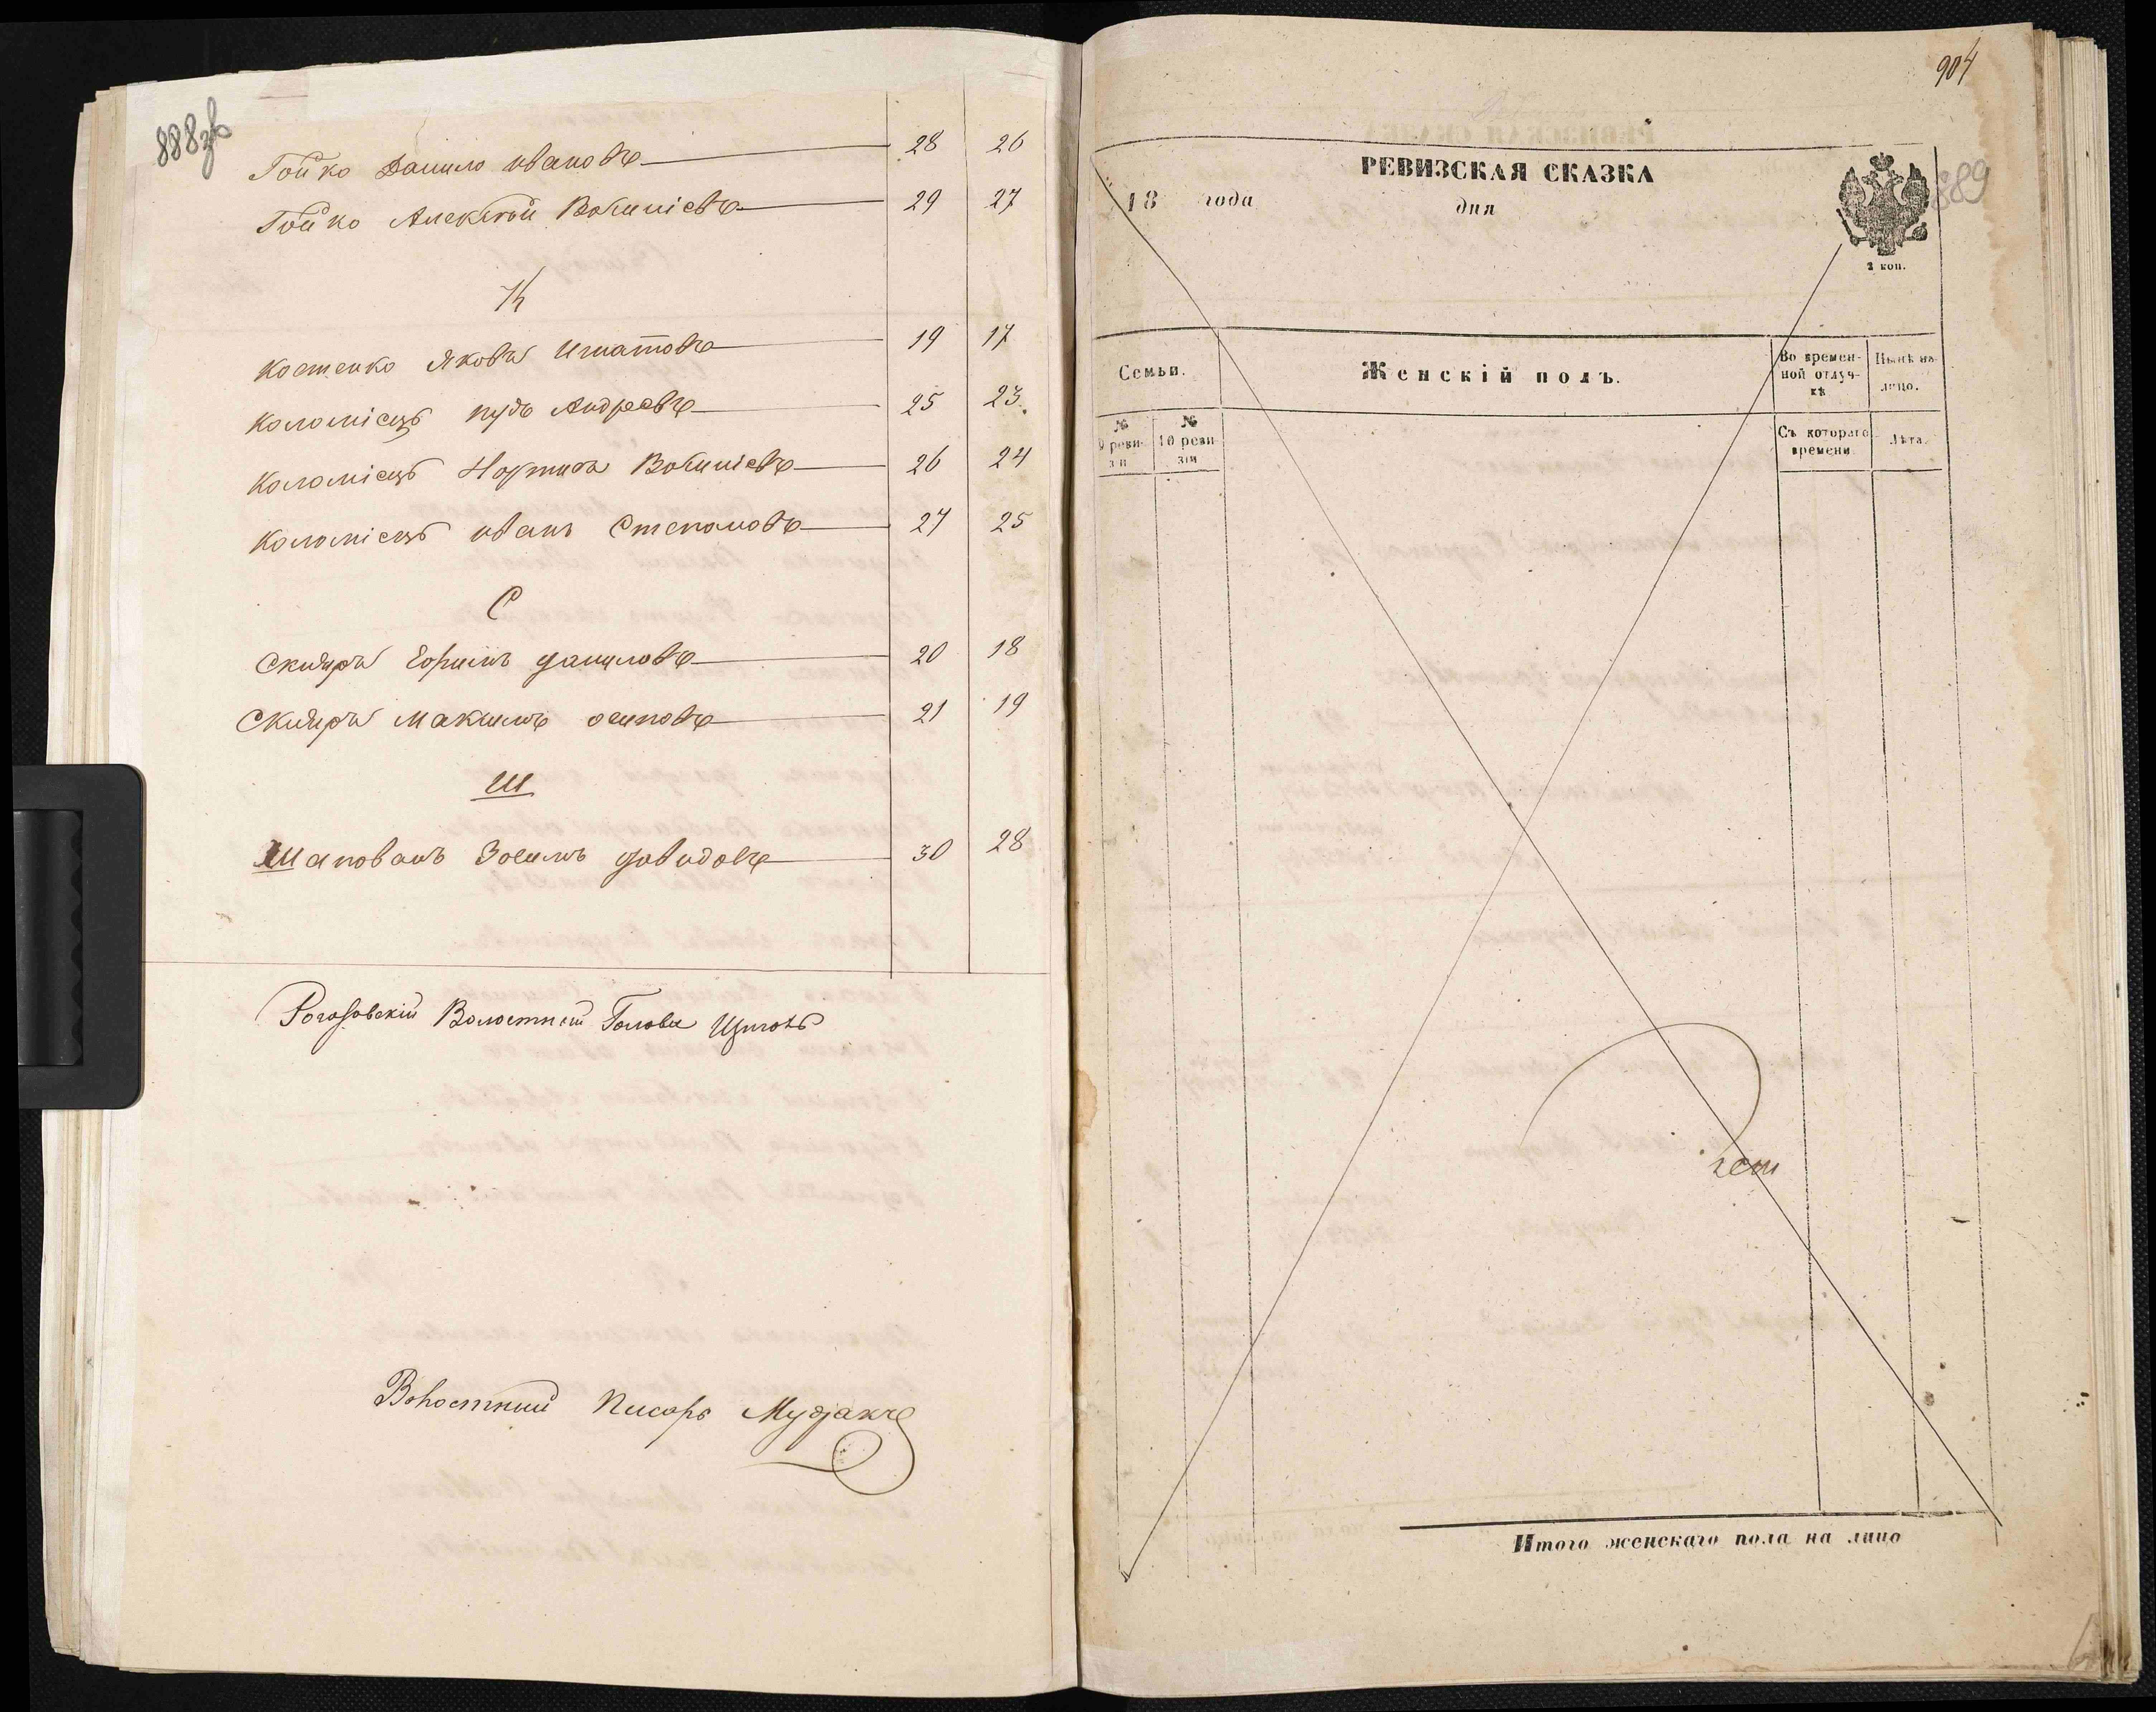 888зв
Гойко Данило Ивановъ 28 26
Гойко Алексѣй Василіевъ 29 27
К
Костенко Яковъ Игнатовъ 19 17
Коломіецъ Пудъ Андреевъ 25 23
Коломіецъ Василіевъ 26 24
Коломіецъ Иванъ Степановъ 27 25
С
Скидиръ Ефимъ Даниловъ 20 18
Скидиръ Максимъ Осиповъ 21 19
Ш
Шаповалъ Зосимъ Давидовъ 30 28
Рогозовскій Волостной Голова
Волостный Писарь
904
889
РЕВИЗСКАЯ СКАЗКА
18 года дня
2 коп.
Семьи.
Женскій полъ.
Во времен-
ной отлуч-
кѣ
Нынѣ на-
лицо.
№
9 реви-
зіи
№
10 реви-
зіи
Съ котораго
времени
Лѣта.
Итого женскаго пола на лицо